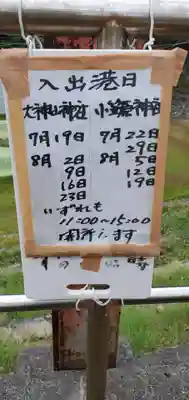 入出港日
大神山神社 小鎰神社
7月19日 7月22日
29日
8月 2日 8月 5日
9日 12日
16日 19日
23日
いずれも
11:00〜15:00
開所します